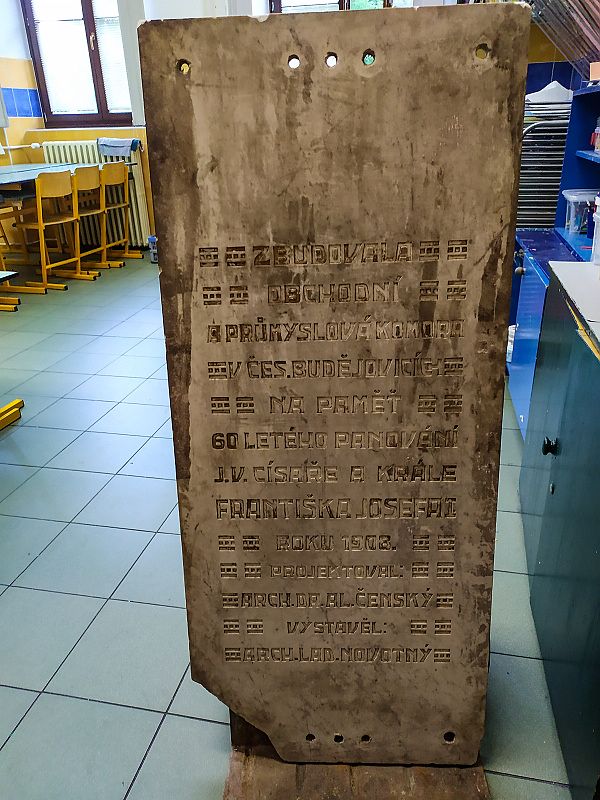 ZBUDOVALA
OBCHODNÍ
A PRŮMYSLOVÁ KOMORA
V ČES. BUDĚJOVICÍCH
NA PAMĚŤ
60 LETÉHO PANOVÁNÍ
J.V. CÍSAŘE A KRÁLE
FRANTIŠKA JOSEFA I
ROKU 1908.
PROJEKTOVAL:
ARCH. DR. AL. ČENSKÝ
VYSTAVĚL:
ARCH. LAD. NOVOTNÝ